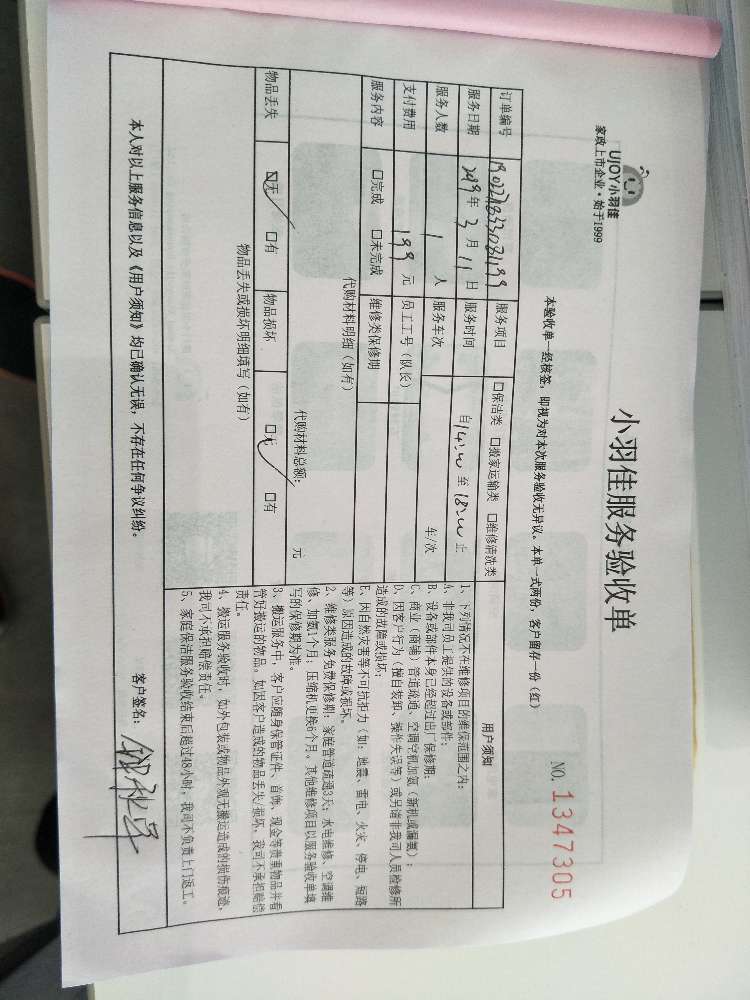 UJOY小羽佳
家政上市企业·始于1999
小羽佳服务验收单
NO. 1347305
本验收单一经核签，即视为对本次服务验收无异议。本单一式两份，客户留存一份（红）
订单编号 服务项目 □保洁类 □搬家运输类 □维修清洗类
服务日期 2019年3月11日 服务时间 自14:00至18:00止
服务人数 1人 服务车次 车/次
支付费用 199元 员工工号（队长）
服务内容 □完成 □未完成 维修类保修期
代购材料明细（如有）
代购材料总额： 元
物品丢失 ☑无 □有 物品损坏 ☑无 □有
物品丢失或损坏明细填写（如有）
用户须知
1、下列情况不在维修项目的维保范围之内：
A、非我司员工提供的设备或部件；
B、设备或部件本身已经超过出厂保修期；
C、商业（商铺）管道疏通、空调空机加氨（新机或漏氨）；
D、因客户行为（擅自装卸、操作失误等）或另请非我司人员检修所
造成的故障或损坏；
E、因自然灾害等不可抗拒力（如：地震、雷电、火灾、停电、短路
等）原因造成的故障或损坏。
2、维修类服务免费保修期：家庭管道疏通3天；水电维修、空调维
修、加氨1个月；压缩机更换6个月。其他维修项目以服务验收单填
写的保修期为准。
3、搬运服务中，客户应随身保管证件、首饰、现金等贵重物品并看
管好搬运的物品。如因客户造成的物品丢失/损坏，我司不承担赔偿
责任。
4、搬运服务验收时，如外包装或物品外观无搬运造成的损伤痕迹，
我司不承担赔偿责任。
5、家庭保洁服务验收结束后超过48小时，我司不负责上门返工。
本人对以上服务信息以及《用户须知》均已确认无误，不存在任何争议纠纷。
客户签名：